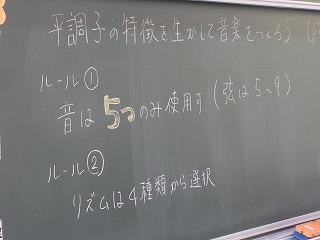 平調子の特徴を生かして音楽をつくろう
ルール①
音は5つのみ使用可(弦は5~9)
ルール②
リズムは4種類から選択